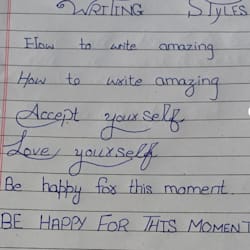 WRITING STYLES
How to write amazing
How to write amazing
Accept yourself
Love yourself
Be happy for this moment.
BE HAPPY FOR THIS MOMENT